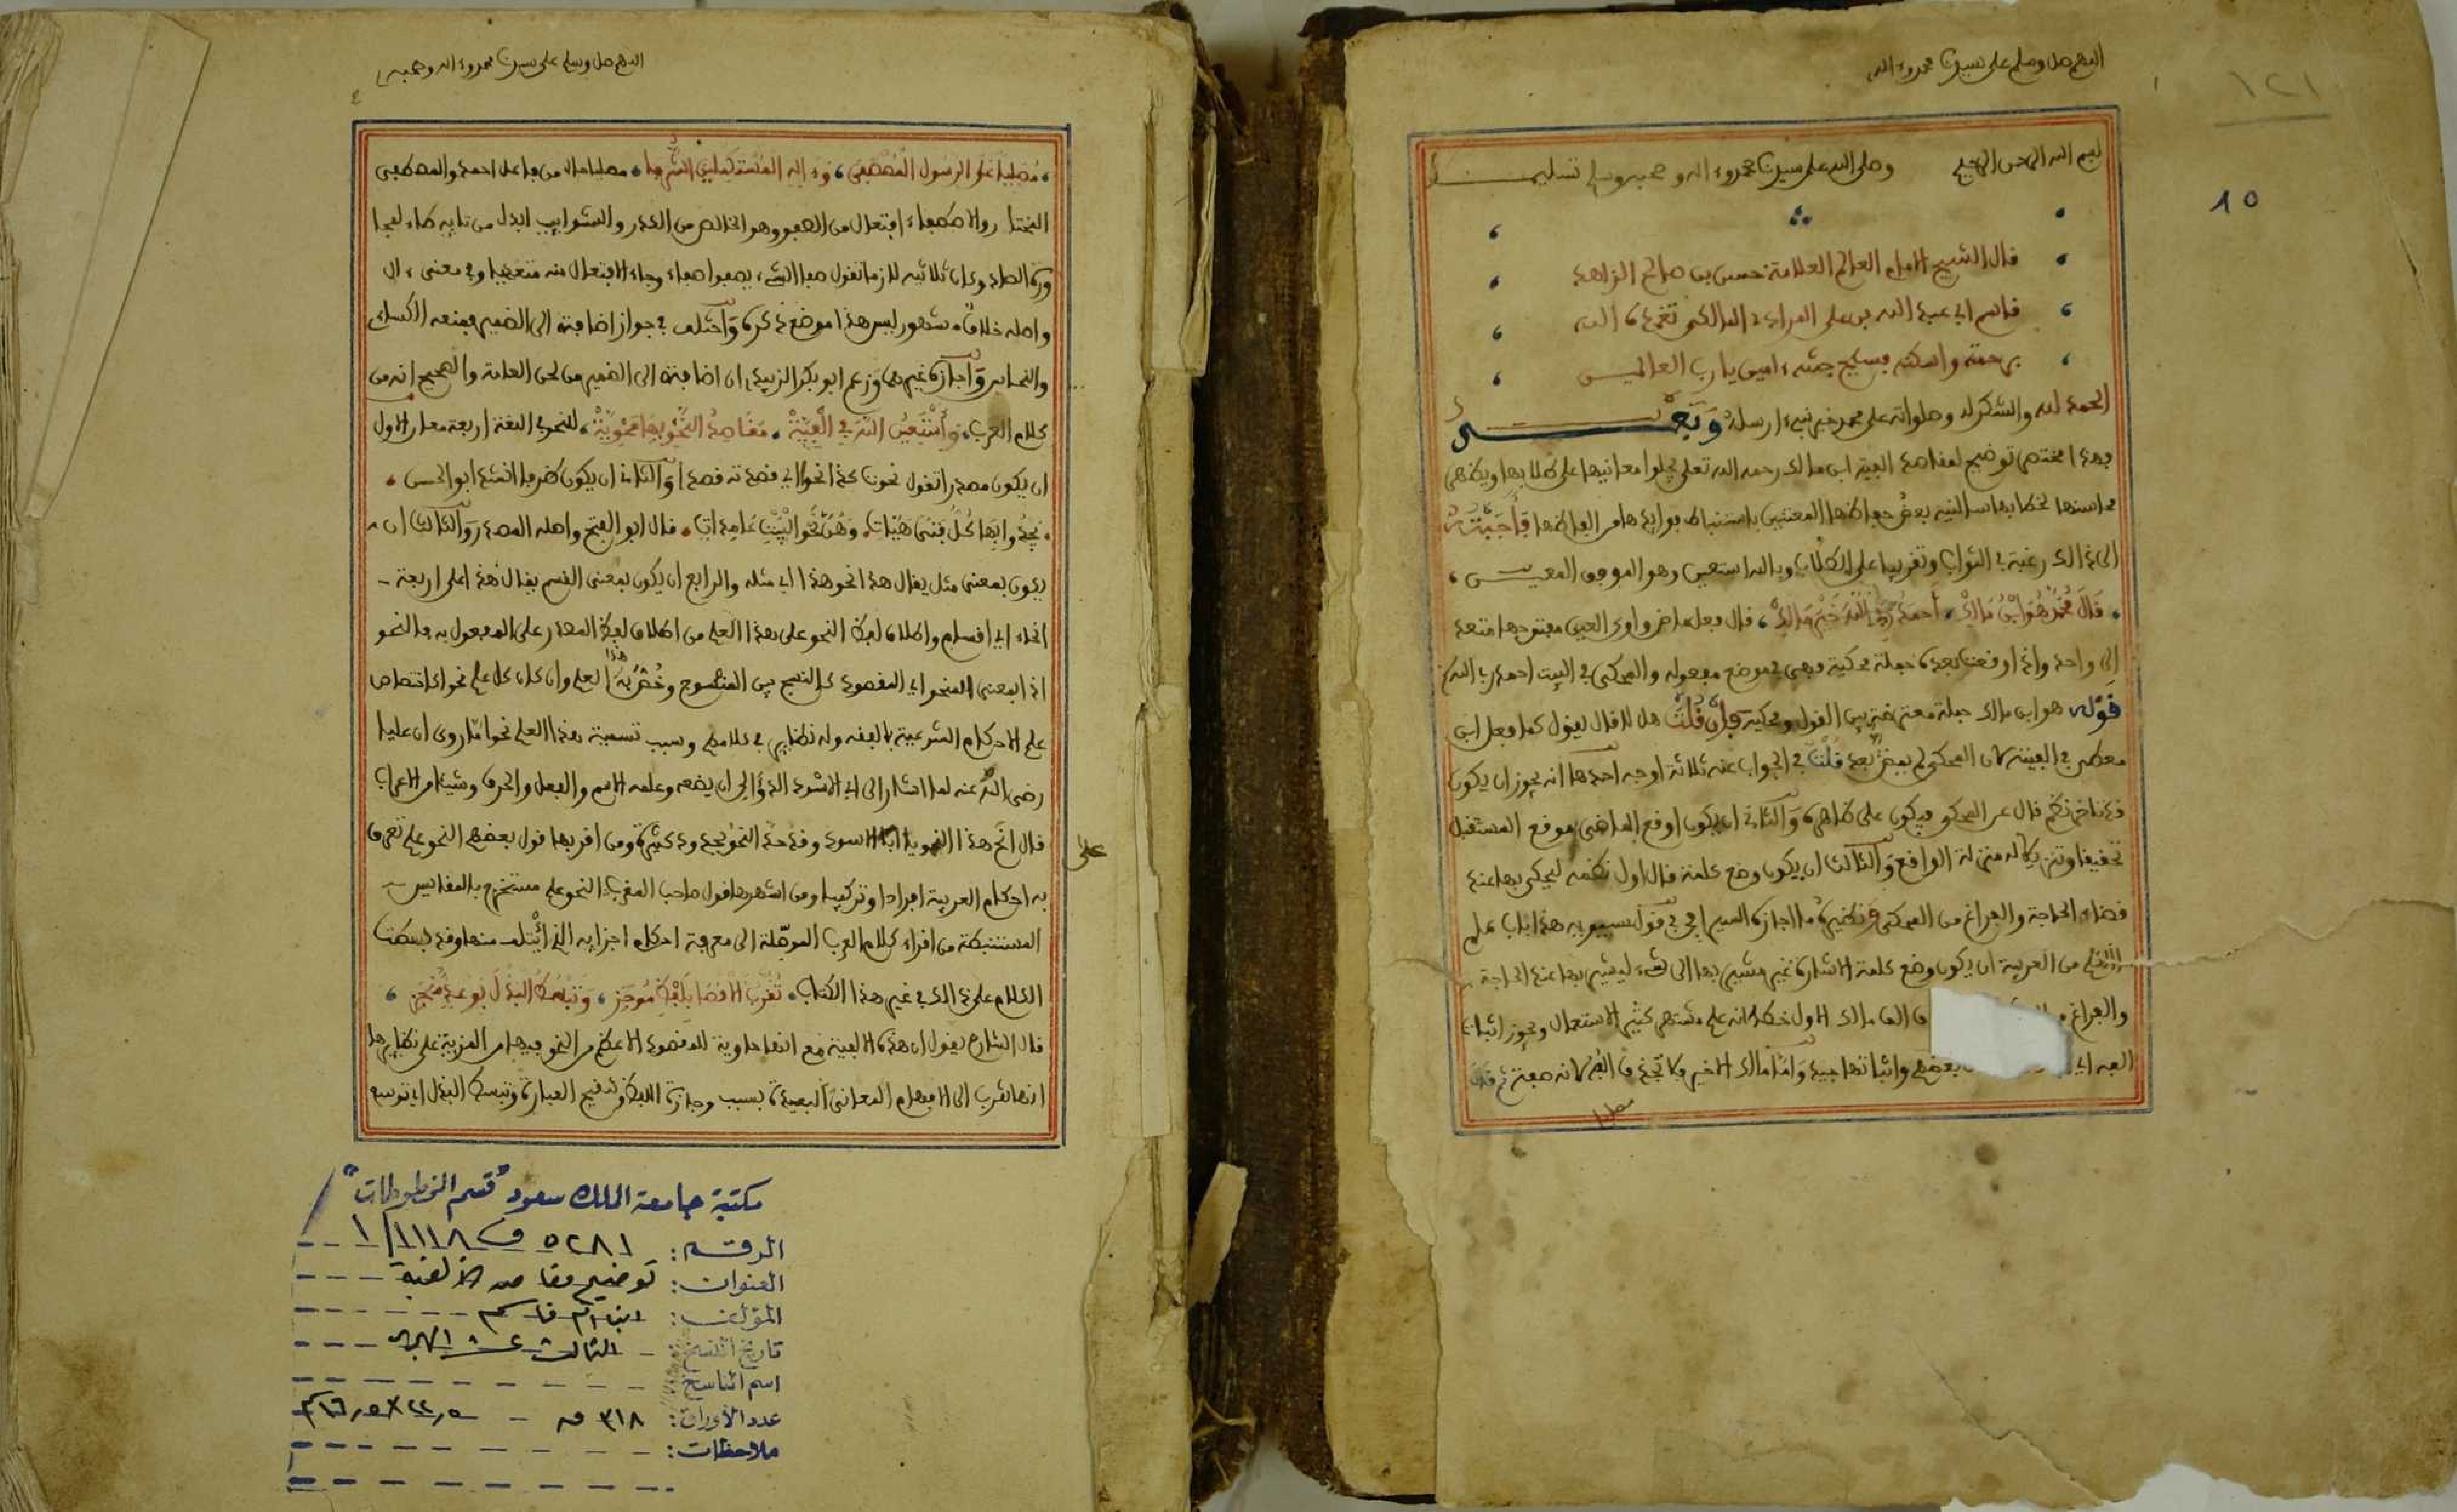 اللهم صل وسلم على سيدنا محمد وءاله
١٢١
١٥
بسم الله الرحمن الرحيم وصلى الله على سيدنا محمد وءاله وصحبه وسلم تسليما
قال الشيخ الامام العالم العلامة حسن بن صالح الزاهد
قاسم ابي عبد الله بن علي المرادي المالكي تغمده الله
برحمته واسكنه فسيح جنته ءامين يارب العالمين
الحمد لله والشكر له وصلواته على محمد خير نبيء ارسله وبعد
فهذا مختصر توضيح لمقاصد الفية ابن مالك رحمه الله تعلى يجلوا معانيها على طلابها ويظهر
محاسنها لخطابها سالنيه بعض حفاظها المعتنين باستنباط فوايدها من الفاظها فاجبته
الى ذالك رغبة في الثواب وتقريبا على الطلاب وبالله استعين وهو الموفق المعين
قال محمد هو ابن مالك احمد ربي الله خير مالك قال فعل ماض واوي العين مفتوحها متعد
الى واحد واذا وقعت بعده جملة محكية فهي في موضع مفعوله والمحكي في البيت احمد ربي الله
قوله هو ابن مالك جملة معترضة بين القول ومحكيه فإن قلت هل لا قال يقول كما فعل ابن
معطي في الفيته لان المحكي لم يمض بعد قلت في الجواب عنه ثلاثة اوجه احدها انه يجوز ان يكون
نظم قال عن المحكي فيكون على ظاهره والثاني ان يكون اوقع الماضي موقع المستقبل
تحقيقا وتنزيلا له منزلة الواقع والثالث ان يكون وضع كلمة قال اول نظمه ليحكى بها عند
قضاء الحاجة والفراغ من المحكي ونظيره ما اجازه السيرافي في قول سيبويه هذا باب علم
ما الكلم من العربية ان يكون وضع كلمة الاشارة غير مشير بها الى شيء ليشير بها عند الحاجة
والفراغ من الف مالك الاول خطا لانه علم مشتهر كثير الاستعمال ويجوز اثبات
الفه بعضهم واثباتها جيد واما مالك الاخير فلا تحذف الفه لانه صفة
مصليا
اللهم صل وسلم على سيدنا محمد وءاله وصحبه
مصليا على الرسول المصطفى وءاله المستكملين الشرفا مصليا حال من فاعل احمد والمصطفى
المختار والاصطفاء افتعال من الصفو وهو الخالص من الكدر والشوايب ابدل من تايه طاء لمجا
ورة الصاد وكان ثلاثيه لازما تقول صفا الشيء يصفوا صفاء وجاء الافتعال منه متعديا وفي معنى ءال
واصله خلاف مشهور ليس هذا موضع ذكره واختلف في جواز اضافته الى الضمير فمنعه الكسائي
والنحاس واجازه غيرهما وزعم ابو بكر الزبيدي ان اضافته الى الضمير من لحن العامة والصحيح انه من
كلام العرب وأستعين الله في الفيه مقاصد النحو بها محويه للنحو في اللغة اربعة معان الاول
ان يكون مصدرا تقول نحوت كذا نحوا اي قصدته قصدا والثاني ان يكون ظرفا انشد ابو الحسن
يحدوا بها كل فتى هيات وهن نحو البيت عامدات قال ابو الفتح واصله المصدر والثالث ان
يكون بمعنى مثل يقال هذا نحو هذا اي مثله والرابع ان يكون بمعنى القسم يقال هذا على اربعة
انحاء اي اقسام واطلاق لفظ النحو على هذا العلم من اطلاق لفظ المصدر على المفعول به فالنحو
اذا بمعنى المنحو اي المقصود كالنسج بمعنى المنسوج وخص به هذا العلم وان كان كل علم نحوا كاختصاص
علم الاحكام الشرعية بالفقه وله نظاير في كلامهم وسبب تسمية هذا العلم نحوا ما روي ان عليا
رضي الله عنه لما اشار الى ابي الاسود الدؤلي ان يضعه وعلمه الاسم والفعل والحرف وشيئا من الاعراب
قال انح هذا النحو يا ابا الاسود وقد حد النحو بحدود كثيرة ومن اقربها قول بعضهم النحو علم تعرف
على
به احكام العربية افرادا وتركيبا ومن اشهرها قول صاحب المقرب النحو علم مستخرج بالمقاييس
المستنبطة من استقراء كلام العرب الموصلة الى معرفة احكام اجزايه التي ائتلف منها وقد بسطت
الكلام على ذالك في غير هذا الكتاب تقرب الاقصا بلفظ موجز وتبسط البذل بوعد منجز
قال الشارح يقول ان هذه الالفية مع انها حاوية للمقصود الاعظم من النحو فيها من المزية على نظايرها
انها تقرب الى الافهام المعاني البعيدة بسبب وجازة اللفظ وتنقيح العبارة وتبسط البذل اي توسع
مكتبة جامعة الملك سعود "قسم المخطوطات"
الرقم: ٥٢٨١ ف ١/١١١٨
العنوان: توضيح مقاصد الألفية
المؤلف: ابن ام قاسم
تاريخ النسخ: الثالث عشر الهجري
اسم الناسخ:
عدد الأوراق: ٣١٨ ق - ٢٢٫٥×١٦٫٥سم
ملاحظات: